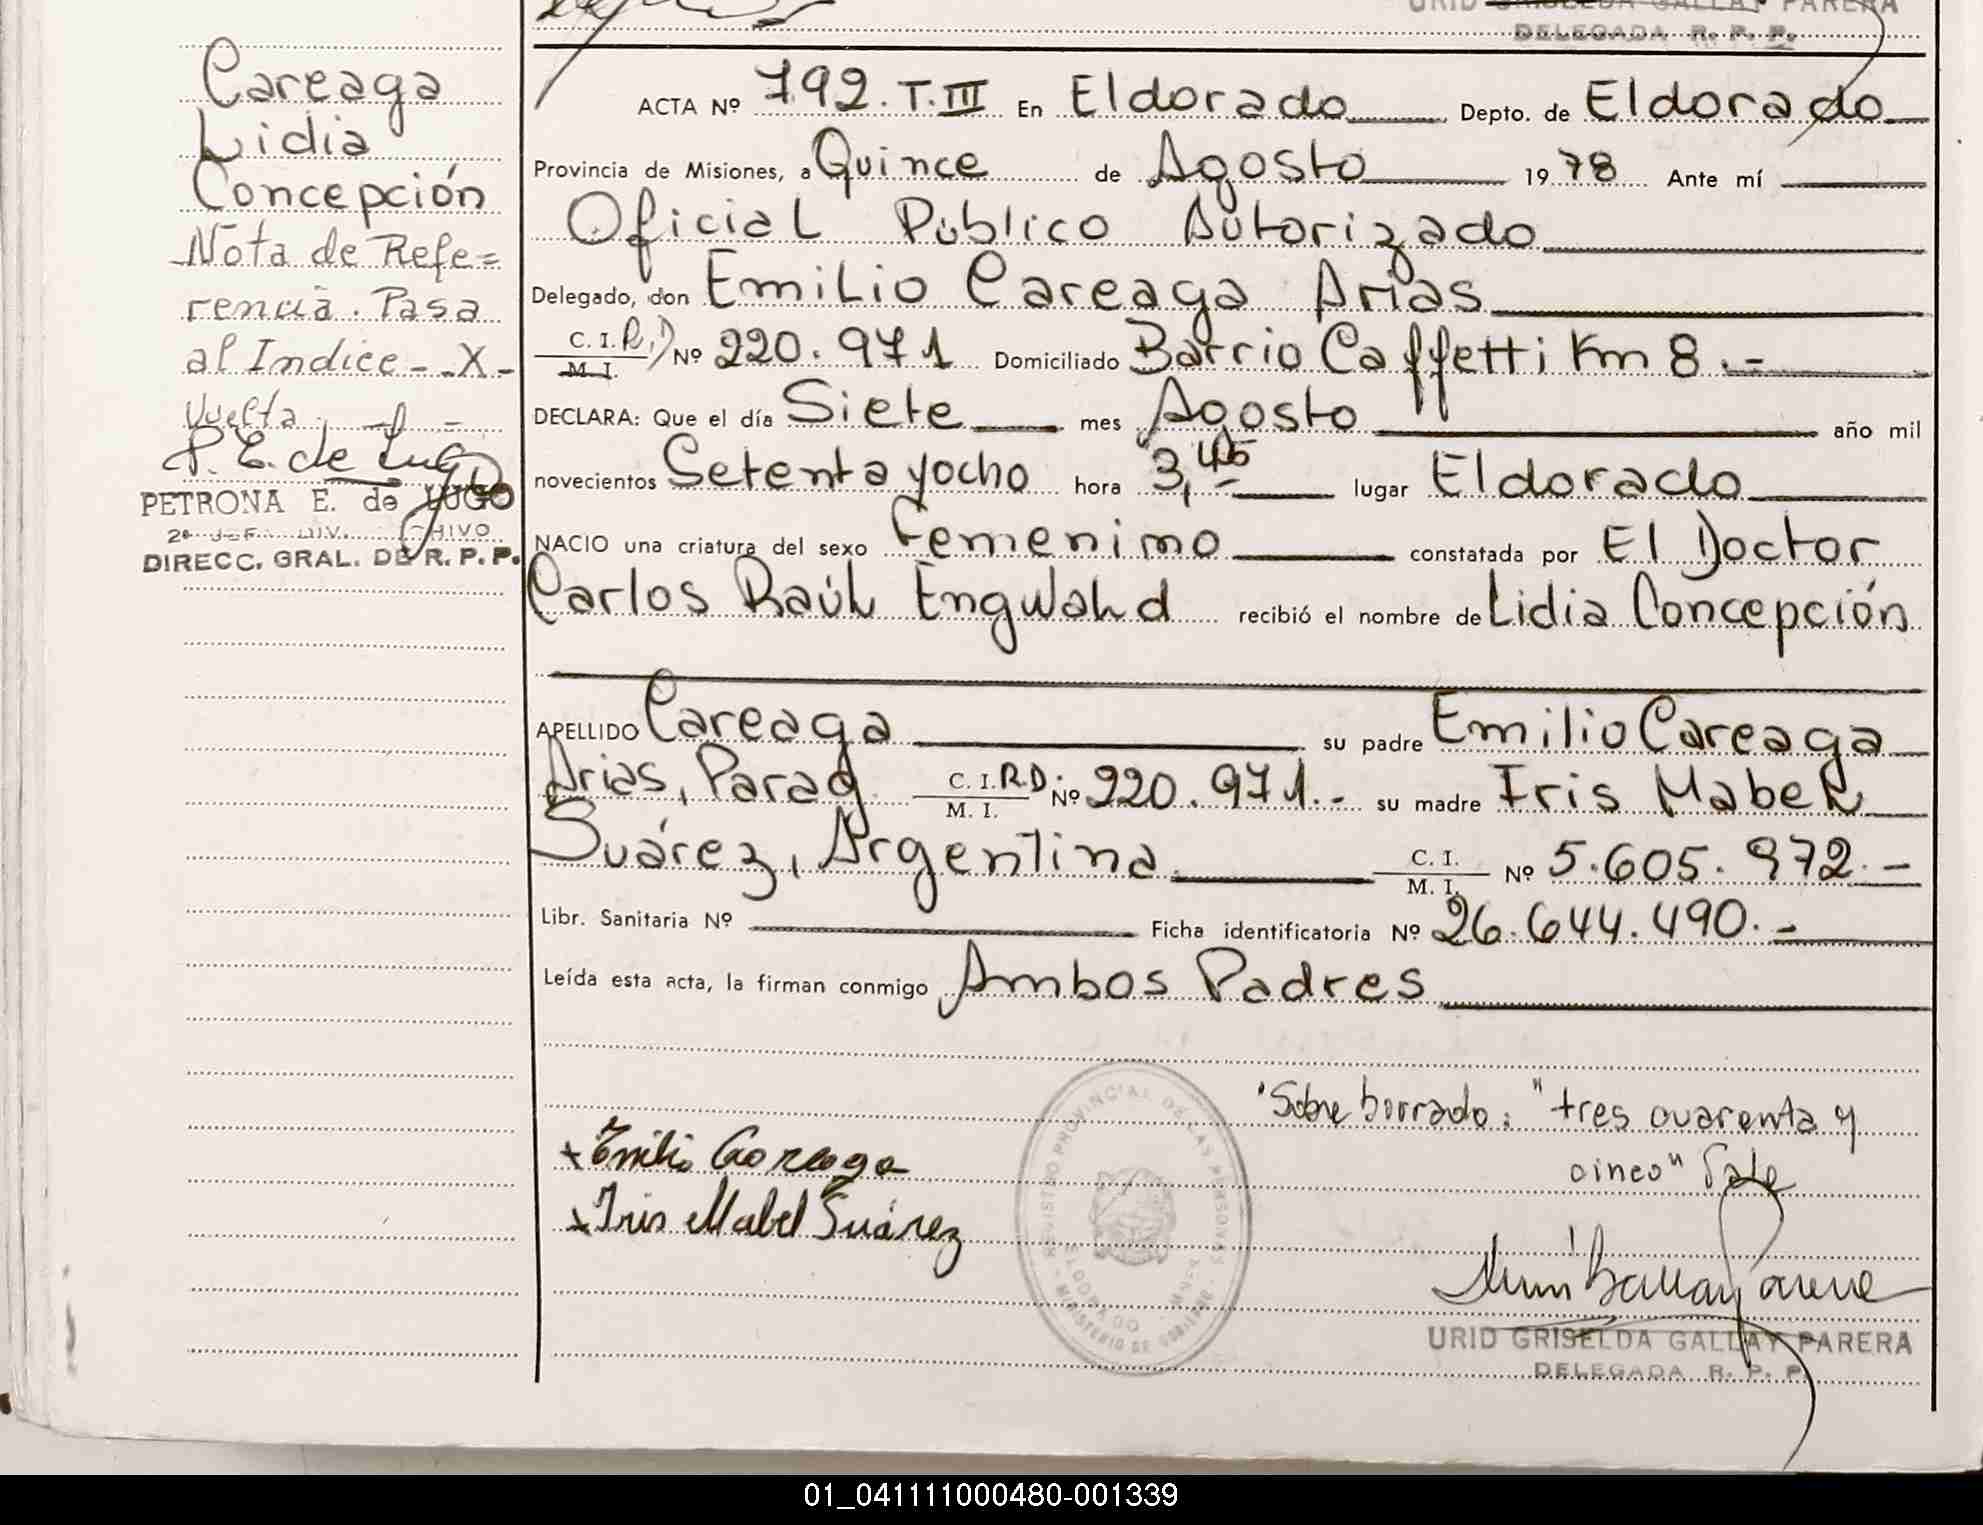 URID GRISELDA GALLAY PARERA
DELEGADA R. P. P.
Careaga
Lidia
Concepción
Nota de Refe=
rencia. Pasa
al Indice - - X -
Vuelta.
P. E. de Lugo
PETRONA E. de LUGO
DIRECC. GRAL. DE R. P. P.
ACTA Nº 792. T. III En Eldorado Depto. de Eldorado
Provincia de Misiones, a Quince de Agosto 1978 Ante mí
Oficial Público Autorizado
Delegado, don Emilio Careaga Arias
C. I. R.D M. I. Nº 220.971 Domiciliado Barrio Caffetti Km 8.-
DECLARA: Que el día Siete mes Agosto año mil
novecientos Setenta y ocho hora 3,45- lugar Eldorado
NACIO una criatura del sexo Femenino constatada por El Doctor
Carlos Raúl Engwald recibió el nombre de Lidia Concepción
APELLIDO Careaga su padre Emilio Careaga
Arias, Parag C. I. R.D. M. I. Nº 220.971.- su madre Iris Mabel
Suárez, Argentina C. I. M. I. Nº 5.605.972.-
Libr. Sanitaria Nº Ficha identificatoria Nº 26.644.490.-
Leída esta acta, la firman conmigo Ambos Padres
"Sobre borrado: "tres cuarenta y
cinco" Vale
Emilio Careaga
Iris Mabel Suárez
REGISTRO PROVINCIAL DE LAS PERSONAS
ELDORADO
MINISTERIO DE GOBIERNO
URID GRISELDA GALLAY PARERA
DELEGADA R. P. P.
01_041111000480-001339